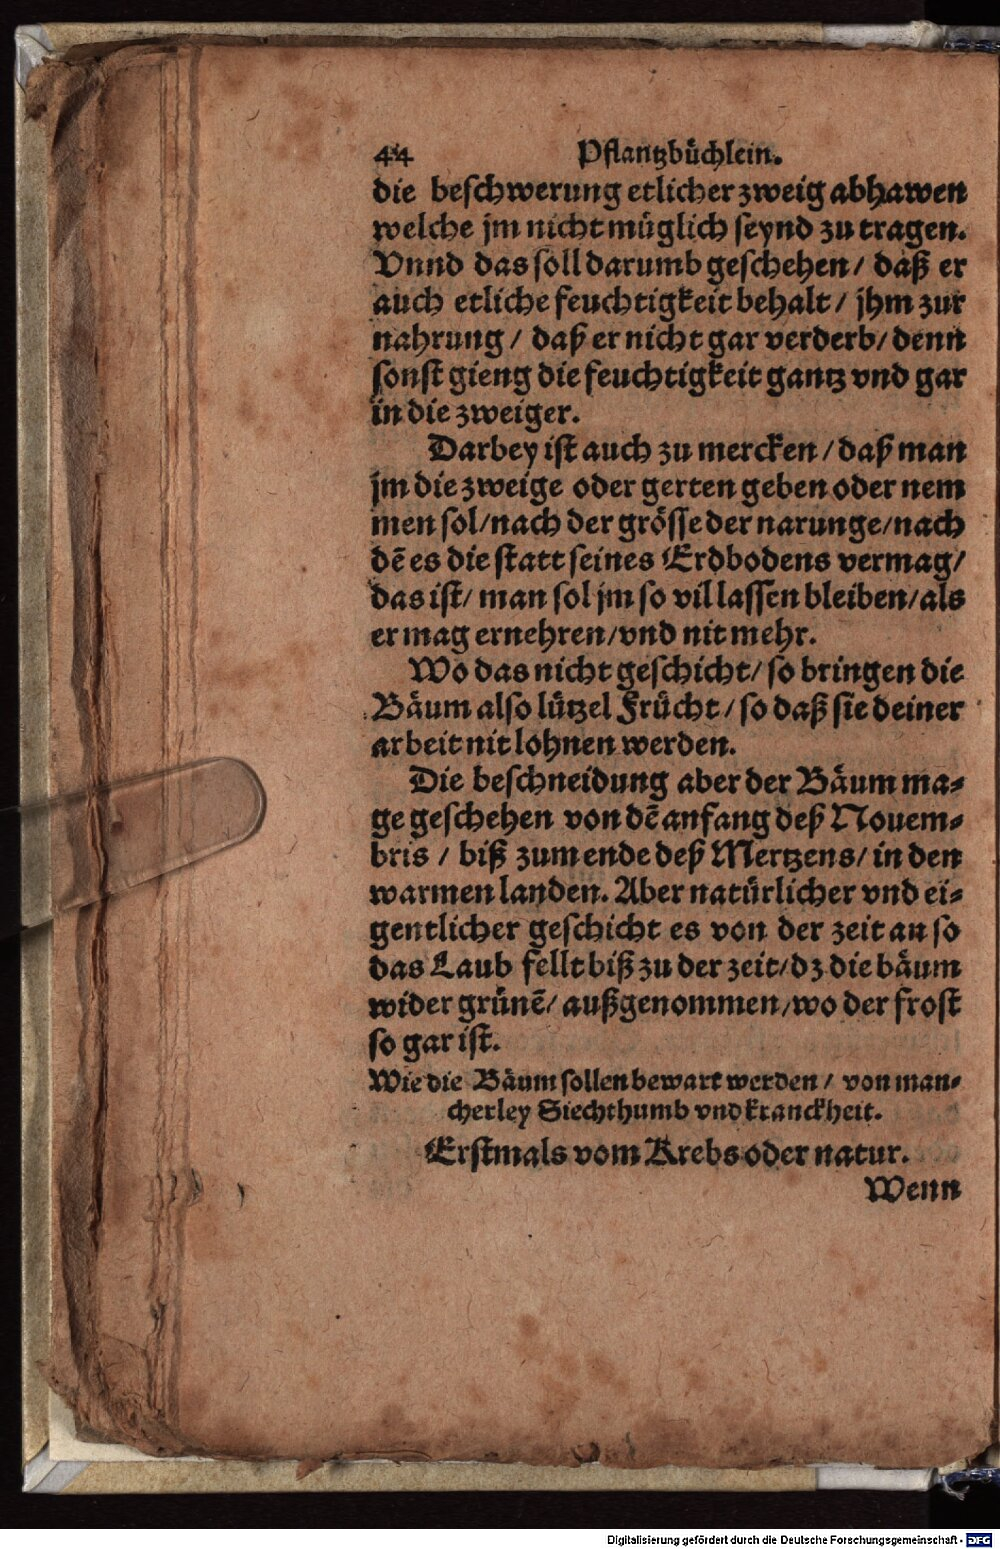 44 Pflantzbüchlein.
die beschwerung etlicher zweig abhawen
welche jm nicht müglich seynd zu tragen.
Vnnd das soll darumb geschehen / daß er
auch etliche feuchtigkeit behalt / jhm zur
nahrung / daß er nicht gar verderb / denn
sonst gieng die feuchtigkeit gantz vnd gar
in die zweiger.
Darbey ist auch zu mercken / daß man
jm die zweige oder gerten geben oder nem
men sol / nach der grösse der narunge / nach
dẽ es die statt seines Erdbodens vermag /
das ist / man sol jm so vil lassen bleiben / als
er mag ernehren / vnd nit mehr.
Wo das nicht geschicht / so bringen die
Bäum also lützel Frücht / so daß sie deiner
arbeit nit lohnen werden.
Die beschneidung aber der Bäum ma-
ge geschehen von dẽ anfang deß Nouem-
bris / biß zum ende deß Mertzens / in den
warmen landen. Aber natürlicher vnd ei-
gentlicher geschicht es von der zeit an so
das Laub fellt biß zu der zeit / dz die bäum
wider grünẽ / außgenommen / wo der frost
so gar ist.
Wie die Bäum sollen bewart werden / von man-
cherley Siechthumb vnd kranckheit.
Erstmals vom Krebs oder natur.
Wenn
Digitalisierung gefördert durch die Deutsche Forschungsgemeinschaft - DFG